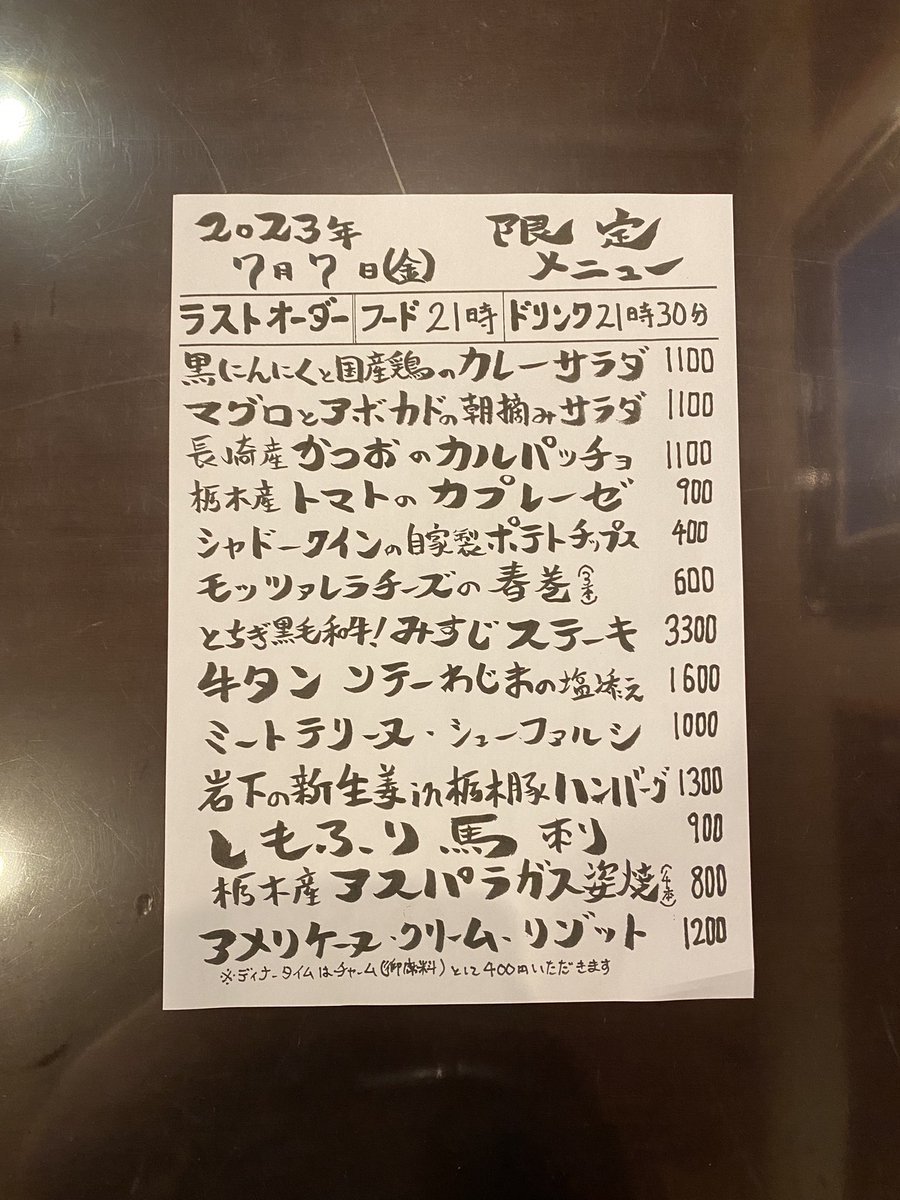 2023年 限定
7月7日(金) メニュー
ラストオーダー フード21時 ドリンク21時30分
黒にんにくと国産鶏のカレーサラダ 1100
マグロとアボカドの朝摘みサラダ 1100
長崎産かつおのカルパッチョ 1100
栃木産トマトのカプレーゼ 900
シャドークインの自家製ポテトチップス 400
モッツァレラチーズの春巻(3本) 600
とちぎ黒毛和牛!みすじステーキ 3300
牛タンソテーわじまの塩添え 1600
ミートテリーヌ・シューファルシ 1000
岩下の新生姜in栃木豚ハンバーグ 1300
しもふり馬刺 900
栃木産アスパラガス姿焼(4本) 800
アメリケーヌ・クリーム・リゾット 1200
※ディナータイムはチャーム(御席料)として400円いただきます